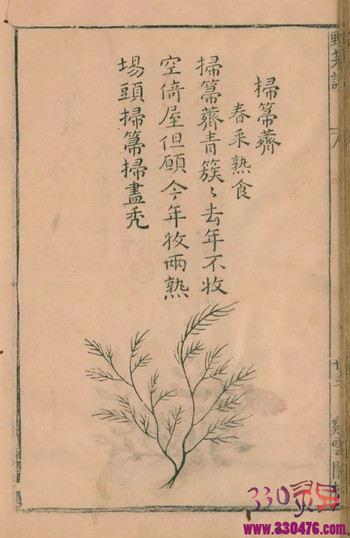 掃箒薺
春采熟食
掃箒薺青簇〻去年不收
空倚屋但願今年收兩熟
場頭掃箒掃盡禿
野菜譜
十三
330
www.330476.com